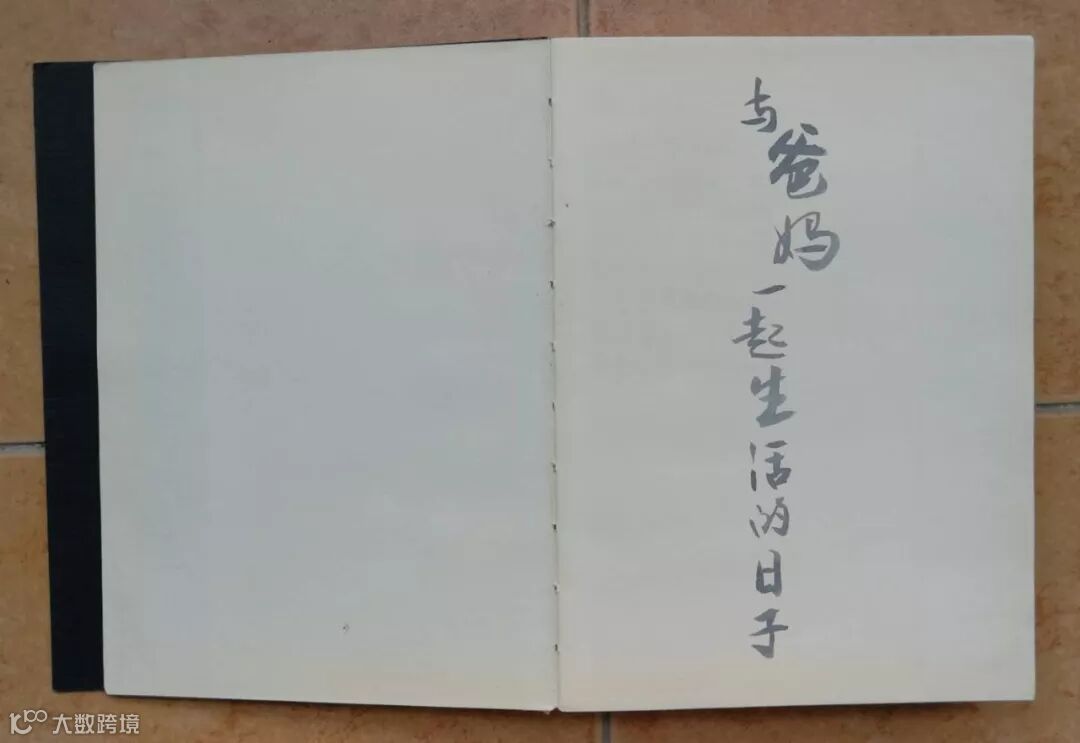 与爸妈一起生活的日子
大数跨境